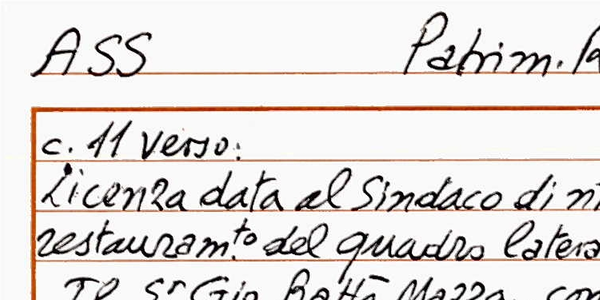 ASS Patrim. Pa
c. 11 verso:
Licenza data al Sindaco di n
restauram.to del quadro latera
Il S.r Gio Batta Mazza, con